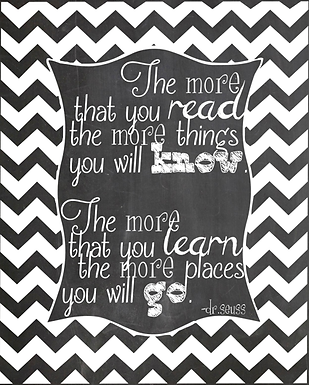 The more
that you read
the more things
you will know.
The more
that you learn
the more places
you will go.
-dr.seuss